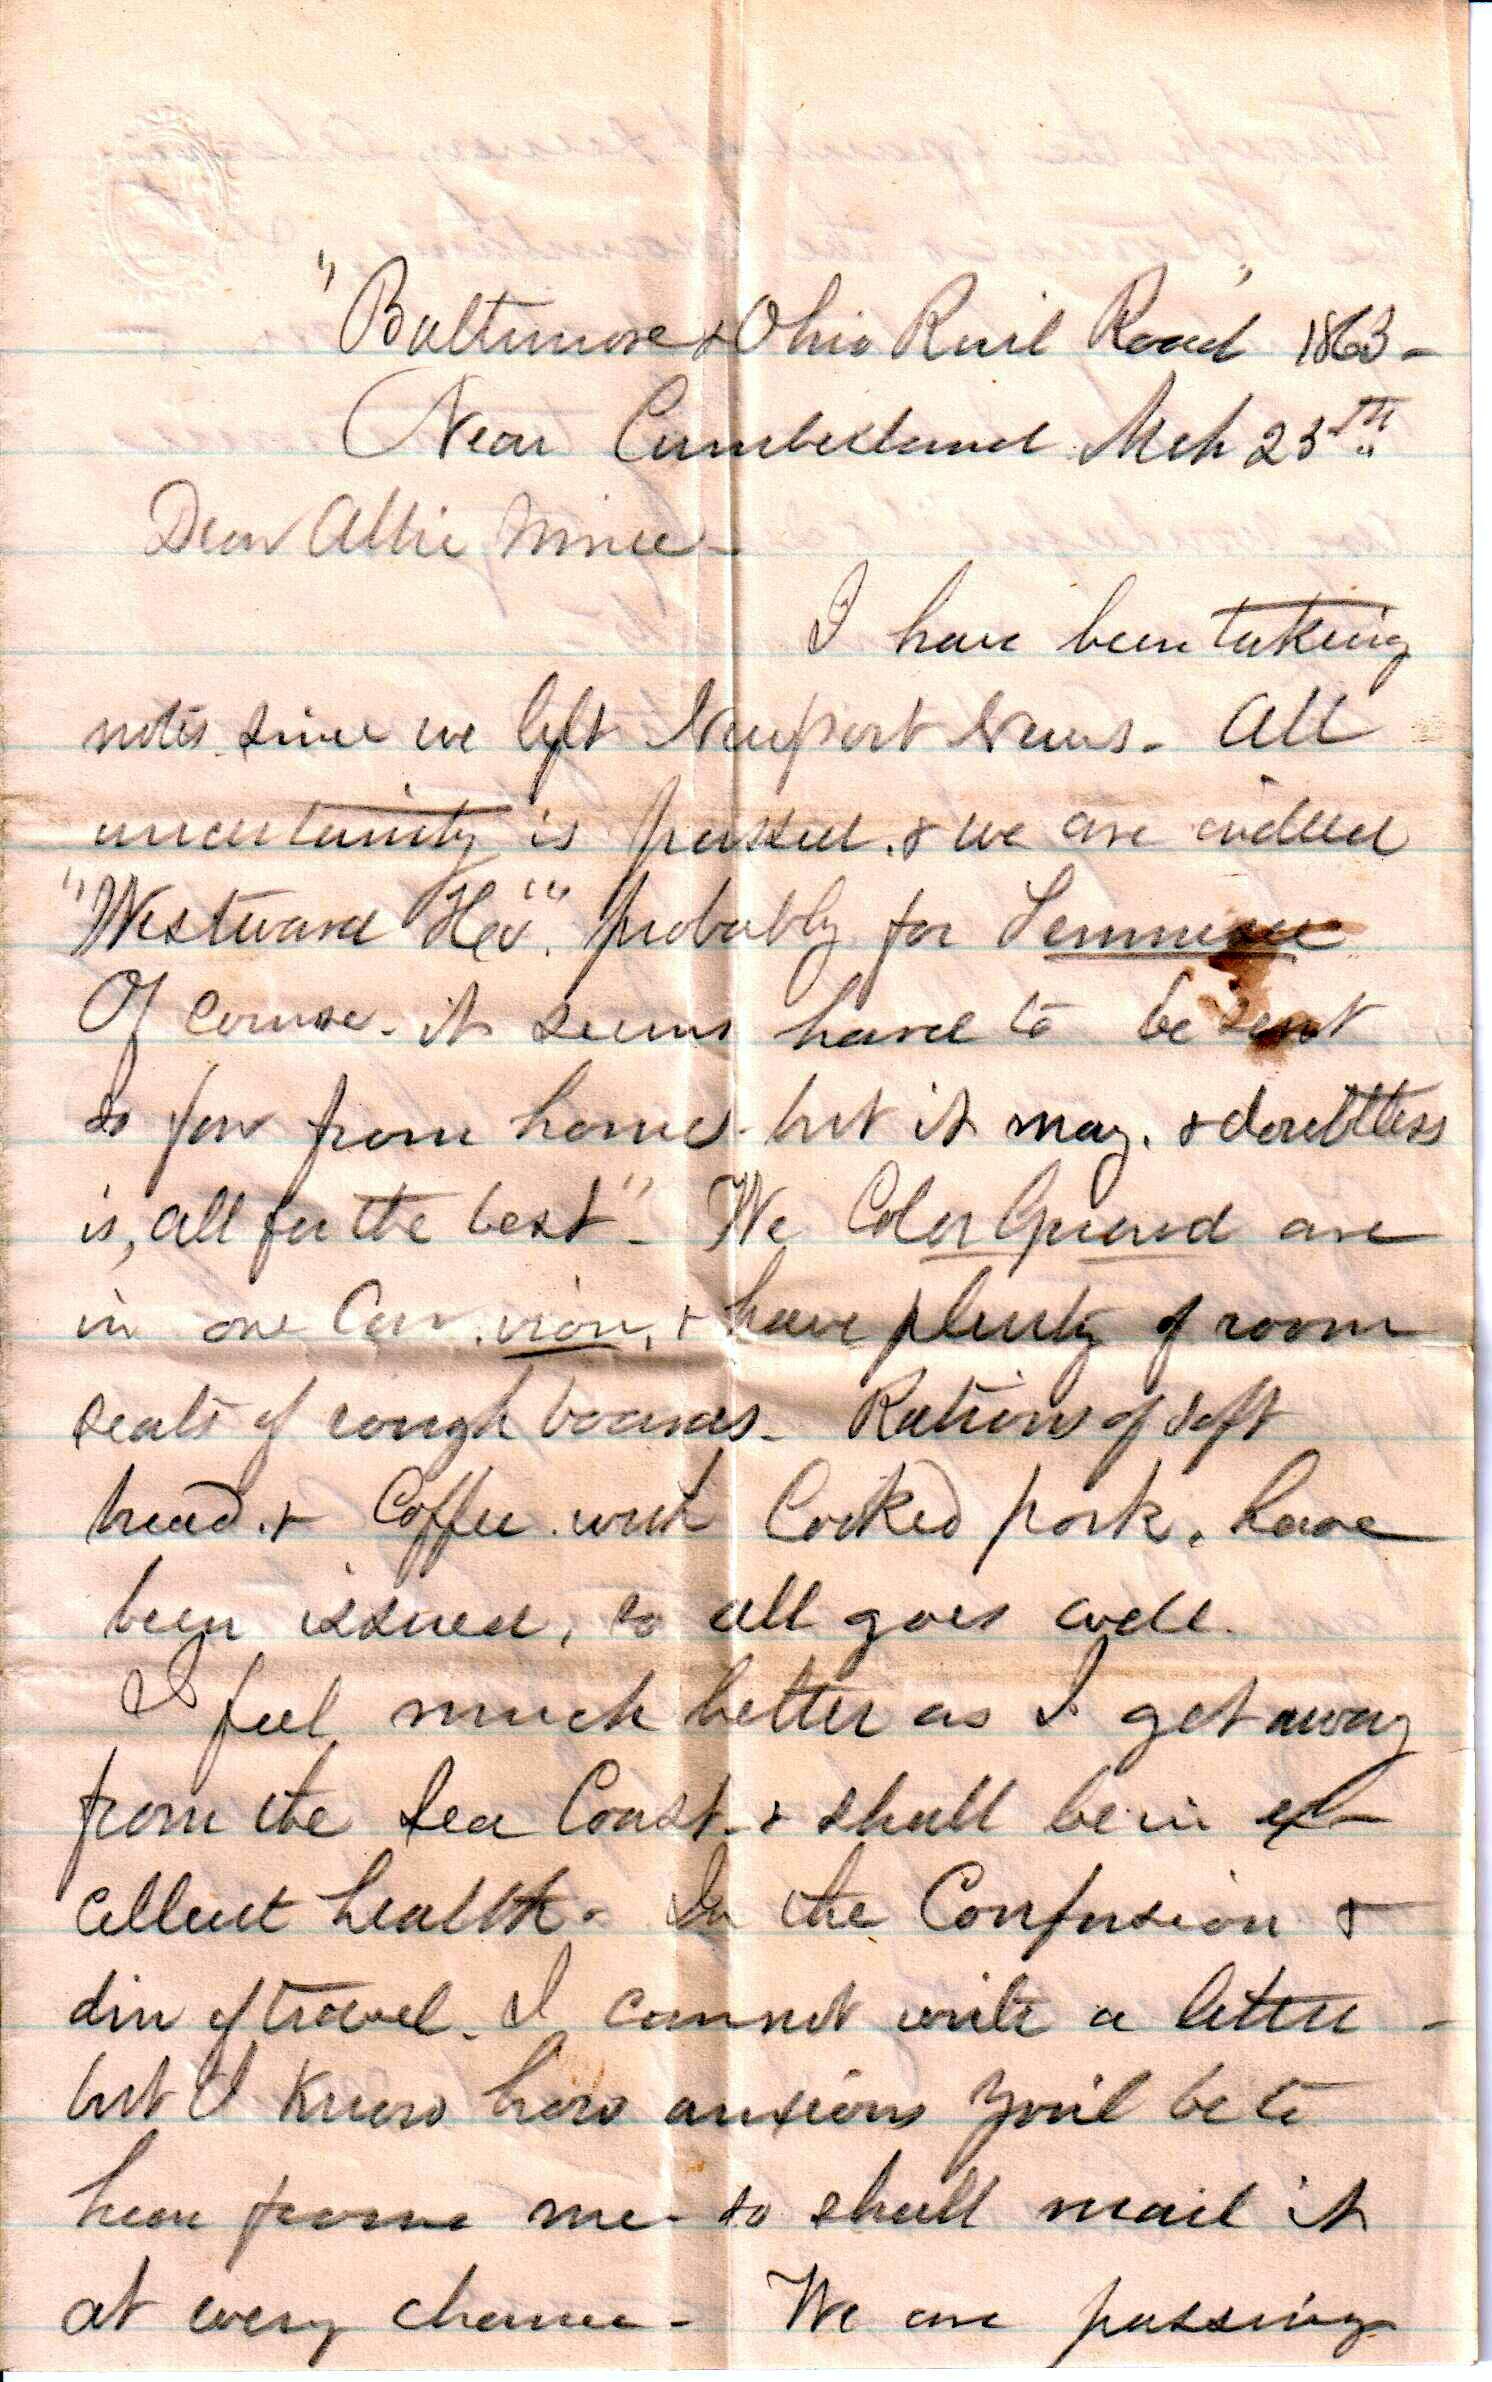 "Baltimore & Ohio Rail Road" 1863-
Near Cumberland Mch 25th
Dear Allie Mine-
I have been taking
notes since we left Newport News- All
uncertainty is passed. & we are
"Westward Ho". probably for Tennessee
Of course- it seems hard to be sent
so far from home- but it may. & doubtless
is, all for the best"- We Color Guard are
in one Car. , & have plenty of room
seats of rough boards- Rations of soft
bread. & Coffee. with Cooked pork. have
been issued, so all goes well.
I feel much better as I get away
from the Sea Coast- & shall be in ex-
cellent health- In the Confusion &
din of travel- I cannot write a letter-
but I know how anxious you'l be to
hear from me- so shall mail it
at every chance- We are passing